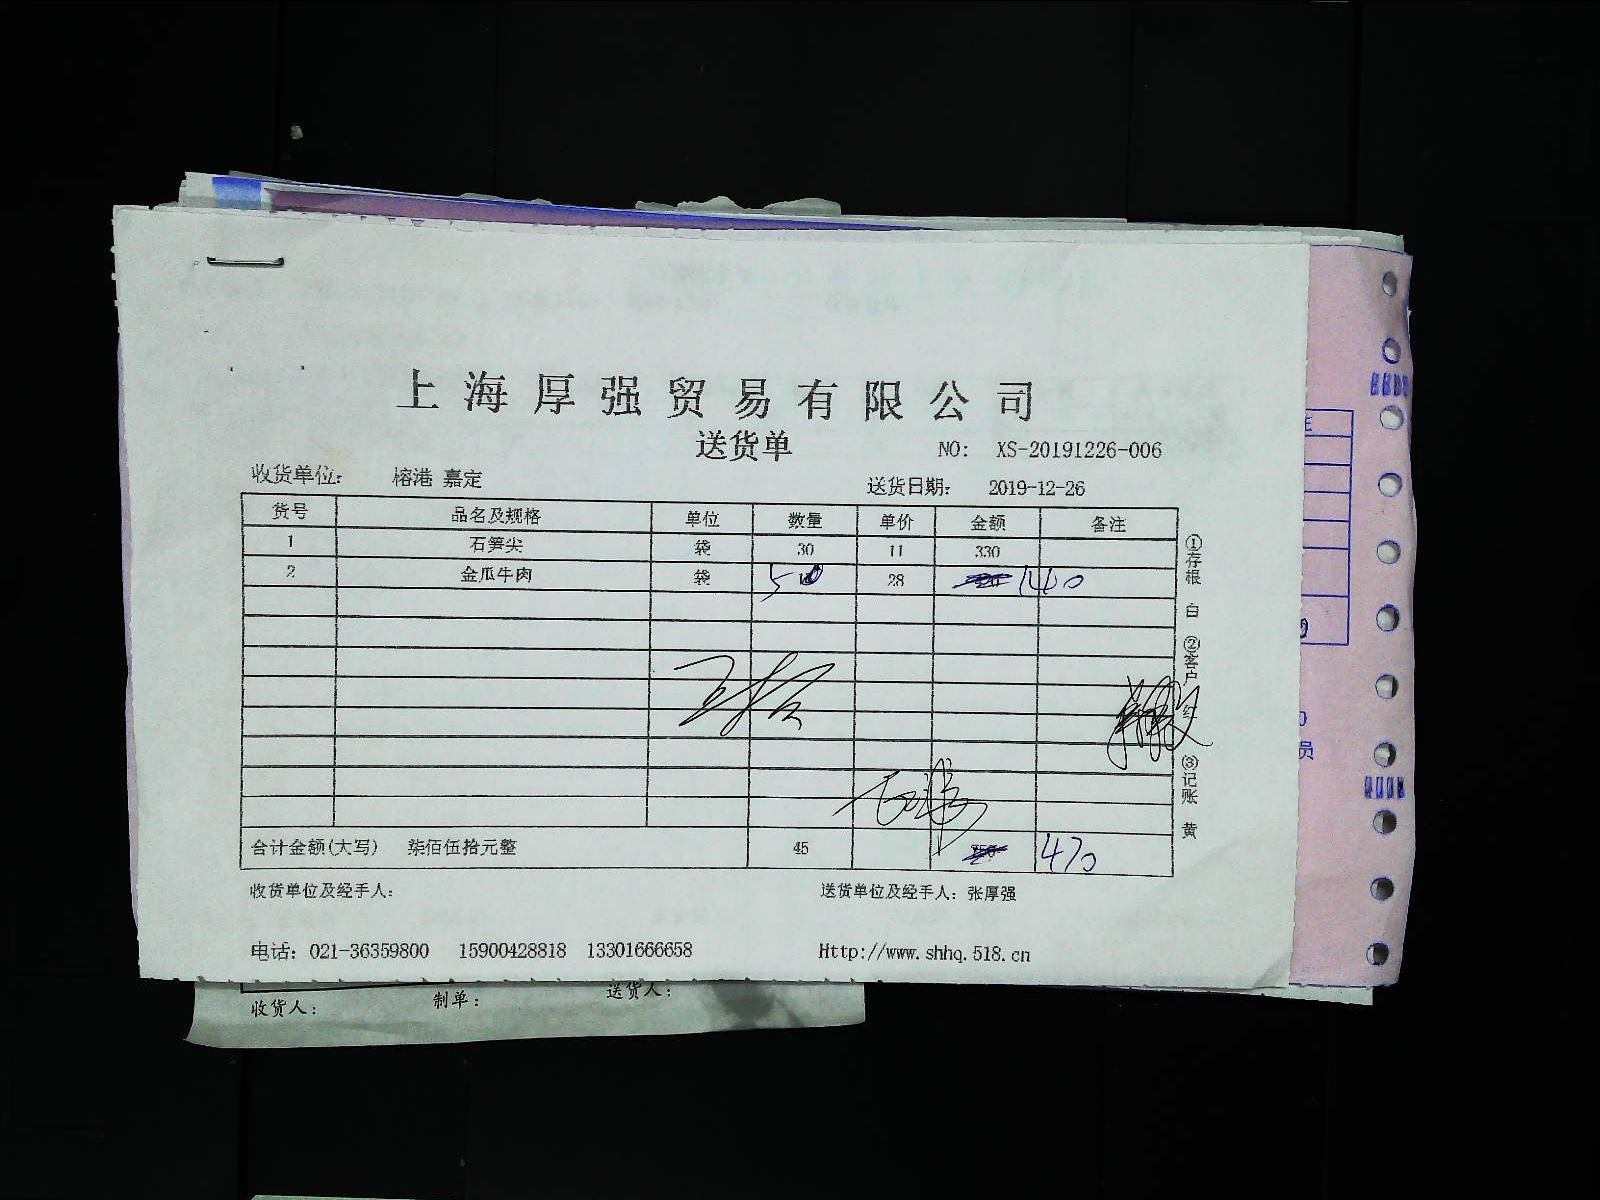 上海厚强贸易有限公司
送货单
NO: XS-20191226-006
收货单位: 榕港 嘉定
送货日期: 2019-12-26
货号 品名及规格 单位 数量 单价 金额 备注
1 石笋尖 袋 30 11 330
2 金瓜牛肉 袋 5 28 140
合计金额(大写) 柒佰伍拾元整 45 470
①存根 白 ②客户 红 ③记账 黄
收货单位及经手人:
送货单位及经手人: 张厚强
电话: 021-36359800 15900428818 13301666658
Http://www.shhq.518.cn
收货人:
制单:
送货人:
员